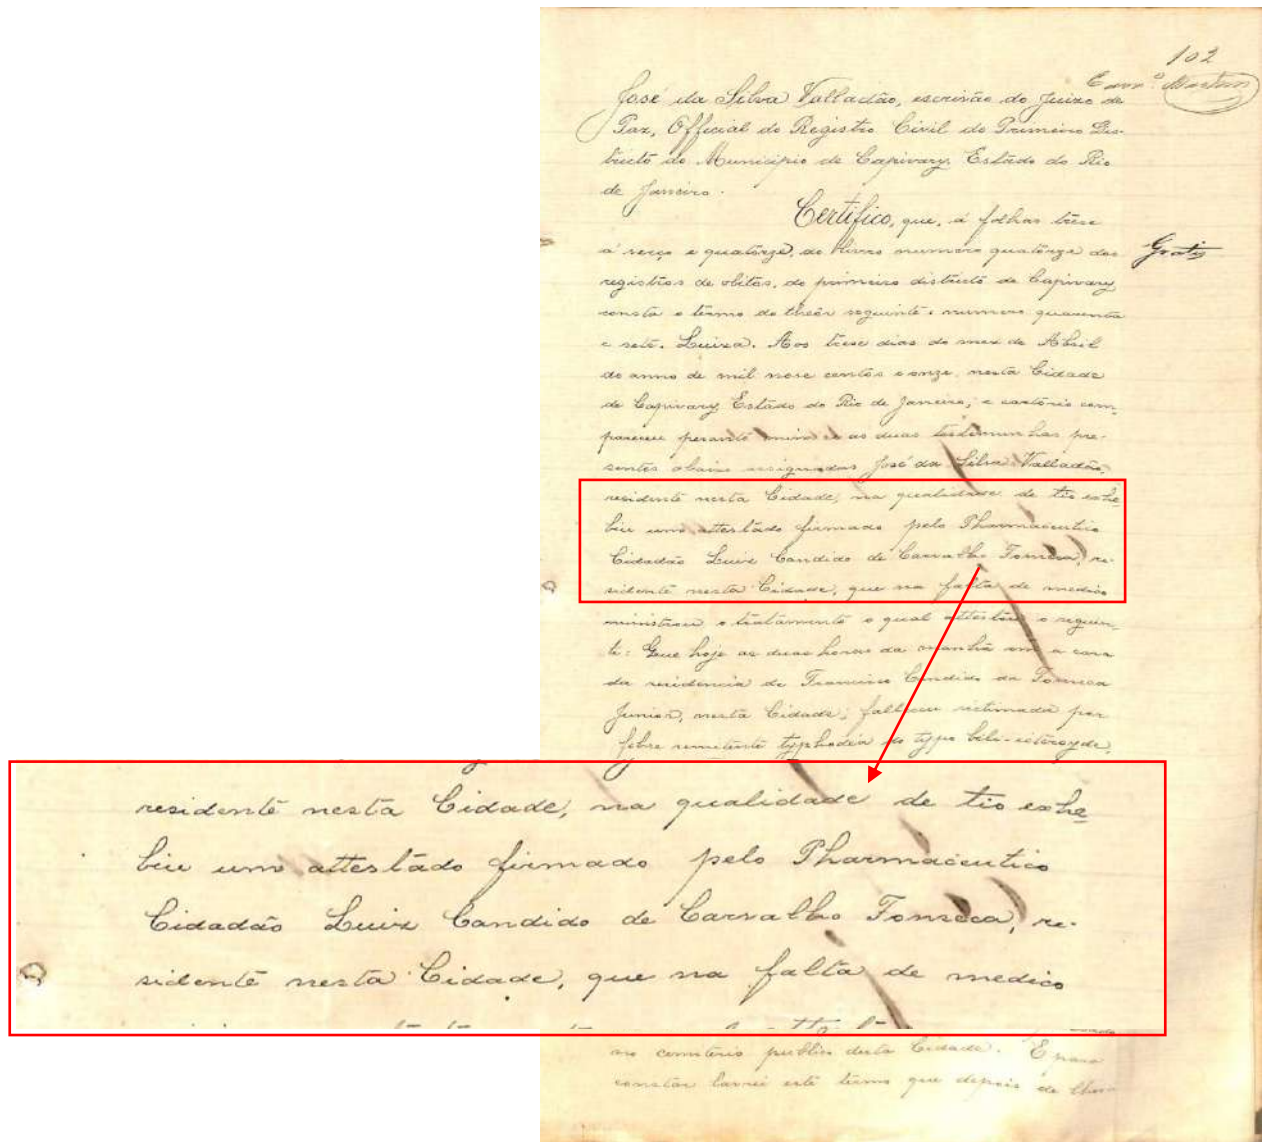 102
José da Silva Valladão, escrivão do Juizo de
Paz, Official do Registro Civil do Primeiro Dis-
tricto do Municipio de Capivary, Estado do Rio
de Janeiro.
Certifico, que, á folhas trese
á verço e quatorze, do livro numero quatorze dos
Gratis
registros de obitos, do primeiro districto de Capivary
consta o termo do theôr seguinte: numero quarenta
e sete. Luiza. Aos trese dias do mez de Abril
do anno de mil nove centos e onze, nesta Cidade
de Capivary, Estado do Rio de Janeiro, e cartório com-
pareceu perante mim e as duas testemunhas pre-
sentes abaixo assignadas José da Silva Valladão,
residente nesta Cidade, na qualidade de tio exhe-
biu um attestado firmado pelo Pharmaceutico
Cidadão Luiz Candido de Carvalho Fonseca, re-
sidente nesta Cidade, que na falta de medico
ministrou o tratamento o qual attestou o seguin-
te: Que hoje as duas horas da manhã em a casa
da residencia de Francisco Candido da Fonseca
Junior, nesta Cidade, falleceu victimada por
febre remitente typhodéa do typo
residente nesta Cidade, na qualidade de tio exhe-
biu um attestado firmado pelo Pharmaceutico
Cidadão Luiz Candido de Carvalho Fonseca, re-
sidente nesta Cidade, que na falta de medico
no cemiterio publico desta Cidade. E para
constar lavrei este termo que depois de